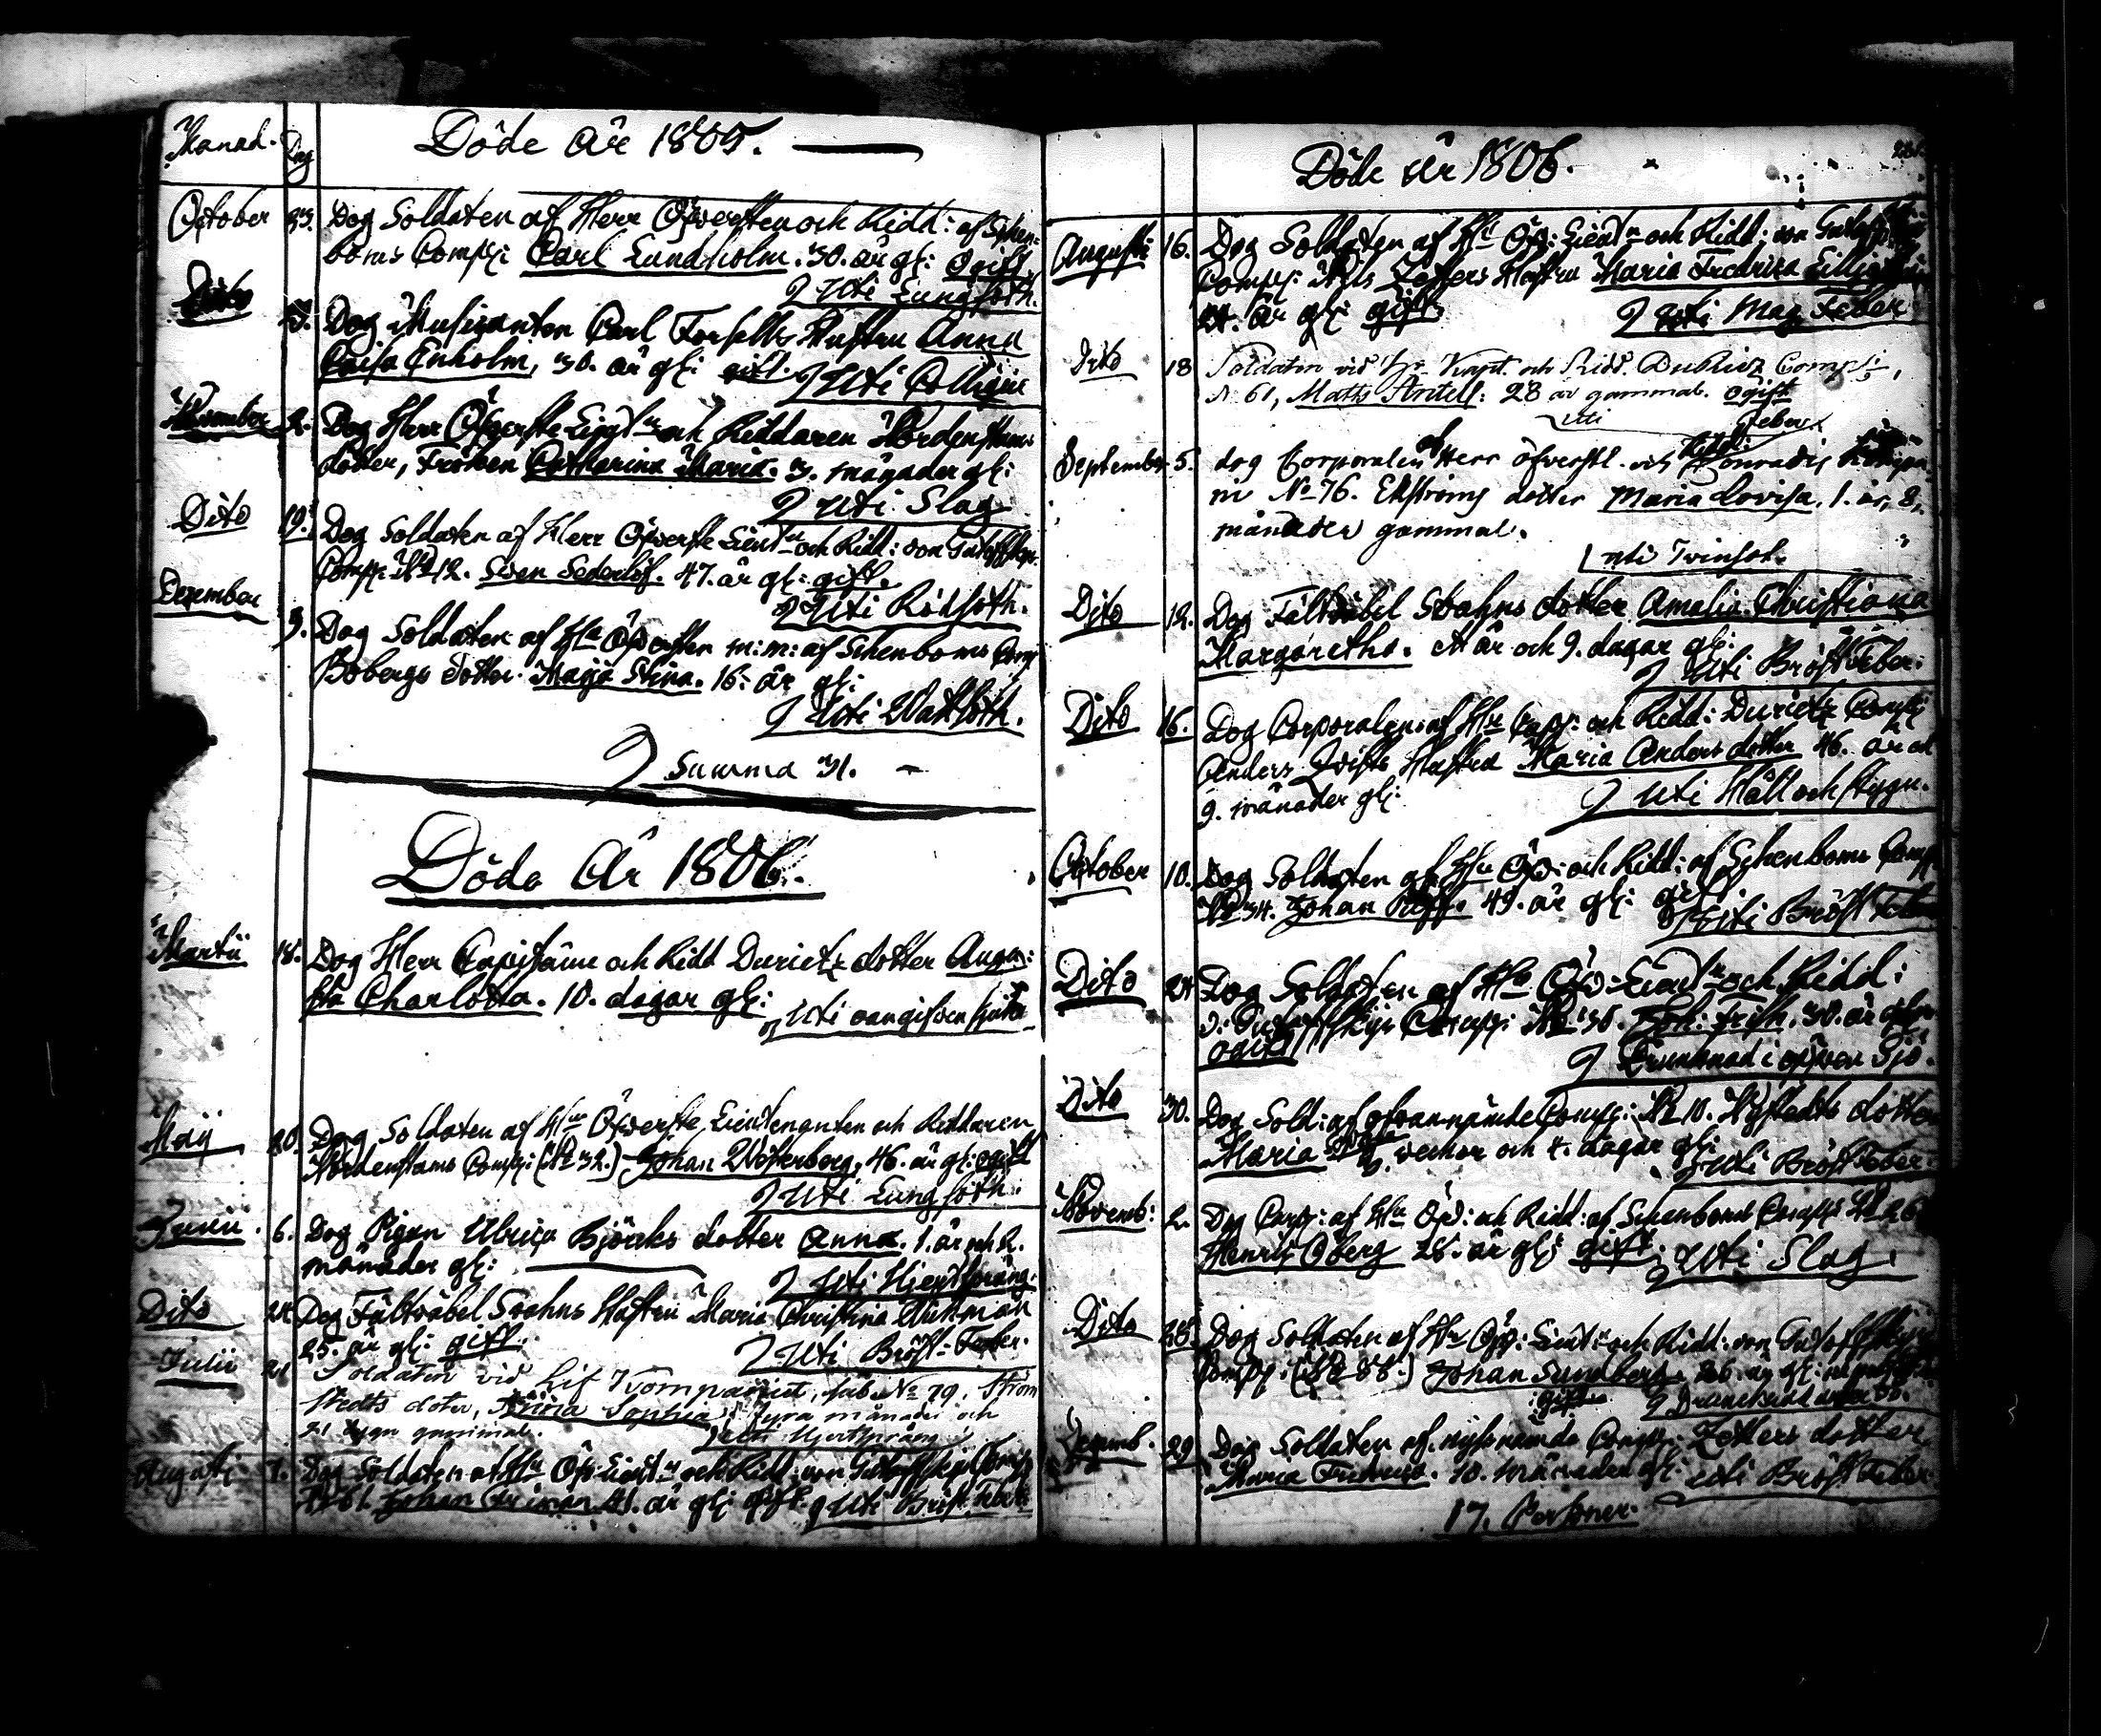 Månad. Dag
Döde År 1805.
October 23. Dog Soldaten af Herr Öfwersten och Ridd: af Schen-
boms Comp: Carl Lundholm. 30. år gl: Ogift
Uti Lungsoth.
Dito Dog Musicanten Carl Forsells Hustru Anna
Caisa Enholm, 30. år gl: gift.
Uti Collique
November 2. Dog Herr Öfwerste Lieut:n och Riddaren Nordenstams
dotter, Fröken Catharina Maria. 3. månader gl:
Uti Slag
Dito 19. Dog Soldaten af Herr Öfwerste Lieut:n och Ridd: von
Comp: No 12. Sven Sederlöf. 47. år gl: gift.
Uti Rödsoth.
December 3. Dog Soldaten af Hr Öfwersten m: m: af Schenboms Comp
Bobergs dotter Maja Stina. 16. år gl:
Uti Wattsoth.
Summa 31.
Döda År 1806.
Martii 18. Dog Herr Capitaine och Ridd Durietz dotter Augu:
sta Charlotta. 10. dagar gl:
Uti
Maij 20. Dog Soldaten af Hr Öfwerste Lieutenanten och Riddaren
Nordenstams Comp: (No 32.) Johan Westerberg, 46. år gl: ogift
Uti Lungsoth.
Junii. 6. Dog Pigan Ulrica Björks dotter Anna. 1. år och 2.
månader gl:
Uti Hjertspräng.
Dito 24 Dog Fältväbel Svahns Hustru Maria Christina
25. år gl: gift.
Uti Bröst-Feber.
Julii 21 Soldaten vid Lif Kompaniet, sub No 79. Ström
stedts doter, Anna Sophia, fyra månader och
21 dygn gammal.
Uti Hjertspräng
Augusti 7. Dog Soldaten af Hr Öfv: Lieut:n och Ridd: von Comp
No 61. Johan 41. år gl: gift. Uti Bröst Feber
Döde år 1806.
Augusti 16. Dog Soldaten af Hr Öfv: Lieut:n och Ridd: von
Comp: Nils Zetters Hustru Maria Fredrica
24. år gl: gift
Uti Mag Feber
Dito 18 Soldaten vid Hr Kapit. och Ridd. DuRietz Comp:
N 61, Matts Antell: 28 år gammal. ogift
Uti feber
September 5. dog Corporalen af Herr öfverstl. och Ridd: Conradis Kompa
ni No 76. Ekströms dotter Maria Lovisa, 1. år, 8,
månader gammal.
uti Tvinsot.
Dito 12. Dog Fältväbel Svahns dotter Amalia Christiana
Margaretha. år och 9. dagar gl:
Uti Bröst Feber.
Dito 16. Dog Corporalen af Hr Cap: och Ridd: Durietz Comp:
Anders Qvists Hustru Maria Anders dotter 46. år och
9. månader gl:
Uti Håll och stygn.
October 10. Dog Soldaten af Hr Öfv: och Ridd: af Schenboms Comp
No 34. Johan 49. år gl: gift.
Uti Bröst Feber
Dito 24 Dog Soldaten af Hr Öfv: Lieut:n och Ridd:
v: Comp: No 36. Joh: Frisk. 30. år
ogift
Drunknad i Sjö.
Dito 30. Dog Sold: af ofvannämde Comp: No 10. Nystedts dotter
Maria veckor och 4. dagar gl:
Uti Bröst Feber.
Novemb: 2. Dog Corp: af Hr Öfv: och Ridd: af Schenboms Comp: No 26
Henric Öberg 28. år gl: gift.
Uti Slag.
Dito Dog Soldaten af Hr Öfv: Lieut:n och Ridd: von
Comp: (No 88.) Johan Sundberg 26. år gl:
gift
Decemb. 29 Dog Soldaten af nysnämde Comp: Zetters dotter
Maria Fredrica. 10. månader gl: uti Bröst Feber.
17. Personer.